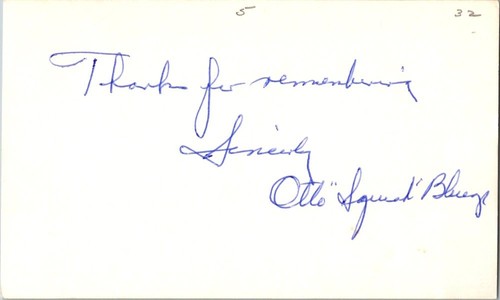 5 32
Thanks for remembering
Sincerely
Otto "Squeak" Bluege